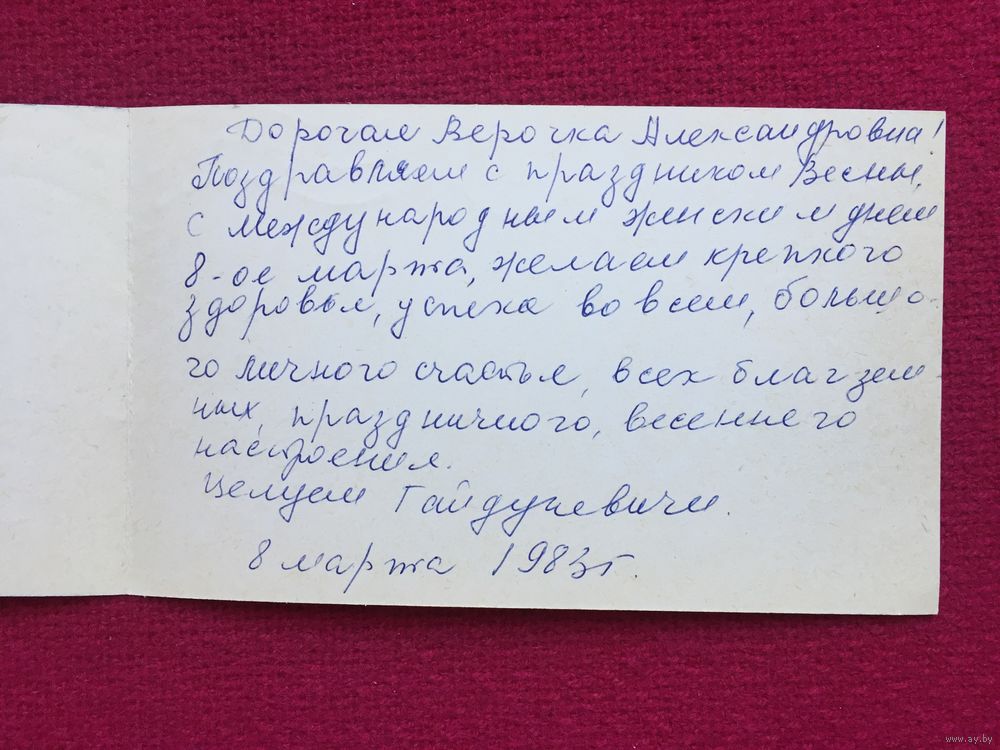 Дорогая Верочка Александровна!
Поздравляем с праздником Весны,
с международным женским днем
8-ое марта, желаем крепкого
здоровья, успеха во всем, большо-
го личного счастья, всех благ зем-
ных, праздничного, весеннего
настроения.
Целуем Гайдукевичи.
8 марта 1983г.
www.ay.by